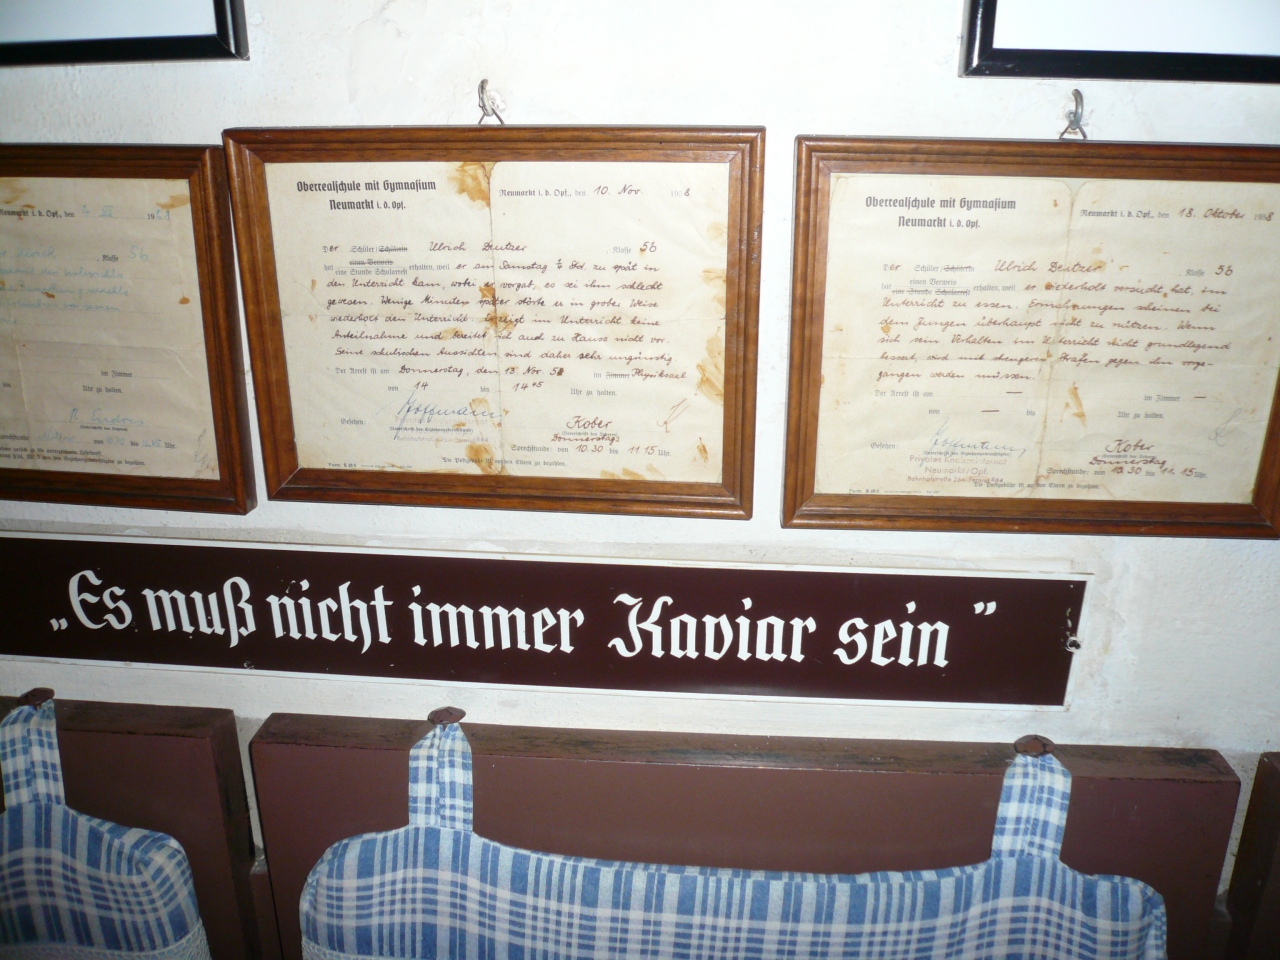 Neumarkt i. d. Opf., den
19
Klasse 5b
im Zimmer
Uhr zu halten.
Oberrealschule mit Gymnasium
Neumarkt i. d. Opf.
Neumarkt i. d. Opf., den 10. Nov. 1958
Der Schüler/Schülerin Ulrich Deutzer, Klasse 5b
einen Verweis
hat eine Stunde Schularrest erhalten, weil er am Samstag ½ Std. zu spät in
den Unterricht kam, wobei er vorgab, es sei ihm schlecht
gewesen. Wenige Minuten später störte er in grober Weise
wiederholt den Unterricht. Er zeigt im Unterricht keine
Anteilnahme und bereitet sich auch zu Hause nicht vor.
Seine schulischen Aussichten sind daher sehr ungünstig
Der Arrest ist am Donnerstag, den 13 Nov. 58 im Zimmer Physiksaal
von 14 bis 14 45 Uhr zu halten.
Gesehen: Hoffmann Kober
Donnerstags
Sprechstunde: von 10.30 bis 11.15 Uhr.
Die Postgebühr ist von den Eltern zu bezahlen.
Oberrealschule mit Gymnasium
Neumarkt i. d. Opf.
Neumarkt i. d. Opf., den 18. Oktober 1958
Der Schüler/Schülerin Ulrich Deutzer Klasse 5b
einen Verweis
hat eine Stunde Schularrest erhalten, weil er wiederholt versucht hat, im
Unterricht zu essen. Ermahnungen scheinen bei
dem Jungen überhaupt nicht zu nützen. Wenn
sich sein Verhalten im Unterricht nicht grundlegend
bessert, wird mit strengeren Strafen gegen ihn vorge-
gangen werden müssen.
Der Arrest ist am — im Zimmer —
von — bis Uhr zu halten.
Gesehen: Kober
Neumarkt/Opf.
Donnerstag
Sprechstunde: von 10.30 bis 11.15 Uhr.
Die Postgebühr ist von den Eltern zu bezahlen.
„Es muß nicht immer Kaviar sein"